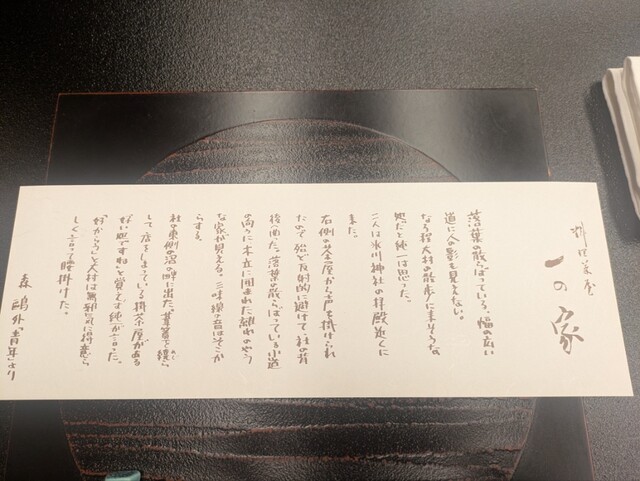 料理茶屋
一の家
落葉の散らばっている、幅の広い
道に、人の影も見えない。
なる程大村の散歩に来さうな
処だと純一は思った。
二人は氷川神社の拝殿近くに
来た。
右側の茶屋から声を掛けられ
たので、殆ど反射的に避けて、社の背
後へ曲った。落葉の散らばっている小道
の向うに、木立に囲まれた離れのやう
な家が見える。三味線の音はそこか
らする。
社の東側の沼の畔に出た。葦簀を繞ら
めぐ
して、店をしまっている掛茶屋がある
好い処ですねと、覚えず純一が云った。
好からうと、大村は無邪気に得意ら
しく云って、腰掛けた。
森鴎外「青年」より